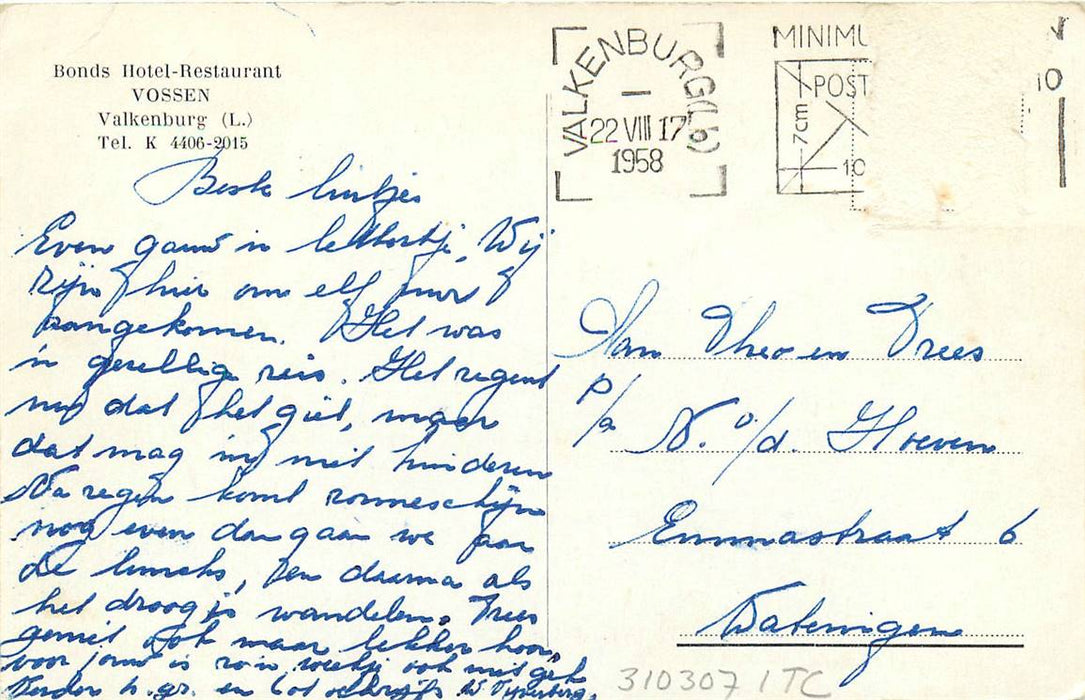 Bonds Hotel-Restaurant
VOSSEN
Valkenburg (L.)
Tel. K 4406-2015
VALKENBURG(Lb)
22 VIII 17
1958
MINIMU
POST
10
10
Beste
Even gauw 'n . Wij
zijn hier om elf uur
aangekomen. Het was
'n gezellige reis. Het regent
nu dat het giet, maar
dat mag nu niet hinderen
Na regen komt zonneschijn
nog even dan gaan we aan
de lunch, en daarna als
het droog is wandelen. Trees
geniet ook maar lekker hoor,
voor jouw is zo'n weekje ook niet gek
Verder h. gr. en tot
Aan Theo en Trees
p/a N. v/d. Hoeven
Emmastraat 6
Wateringen
310307 ITC